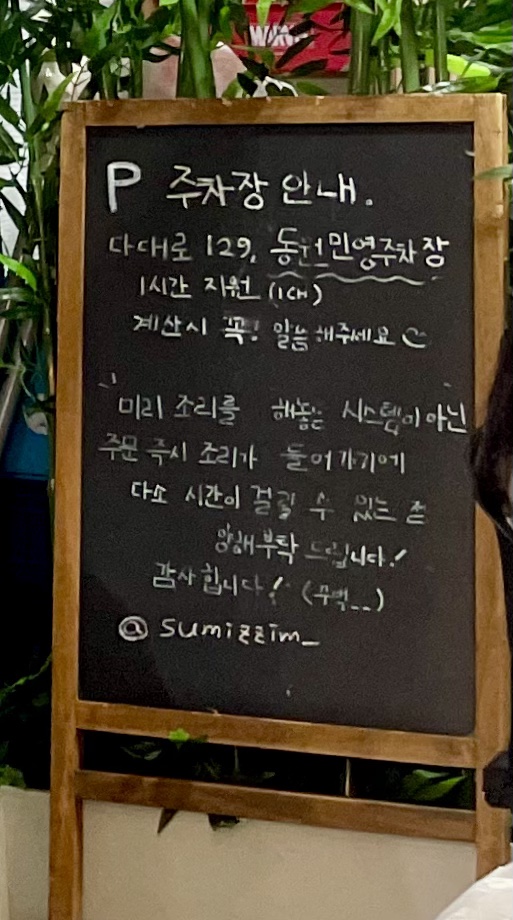 P 주차장 안내.
다대로 129, 동원민영주차장
1시간 지원 (1대)
계산시 꼭! 말씀해주세요
미리 조리를 해놓는 시스템이 아닌
주문 즉시 조리가 들어가기에
다소 시간이 걸릴 수 있는 점
양해부탁 드립니다!
감사합니다! (꾸벅__)
@ sumizzim_